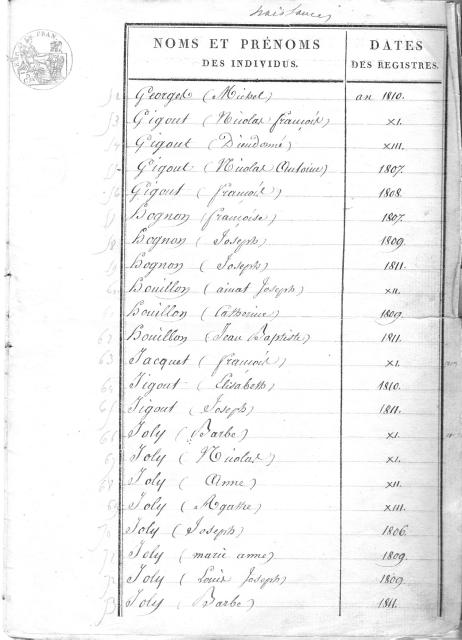 Naissances
NOMS ET PRÉNOMS DES INDIVIDUS.
DATES DES REGISTRES.
52 Georgel (Michel) an 1810.
53 Gigout (Nicolas françois) XI.
54 Gigout (Dieudonné) XIII.
55 Gigout (Nicolas Antoine) 1807.
56 Gigout (françois) 1808.
57 Hognon (françoise) 1807.
58 Hognon (Joseph) 1809.
59 Hognon (Joseph) 1811.
60 Houillon (aimat Joseph) XII.
61 Houillon (Catherine) 1809.
62 Houillon (Jean Baptiste) 1811.
63 Jacquot (françois) XI.
64 Jigout (Elisabeth) 1810.
65 Jigout (Joseph) 1811.
66 Joly (Barbe) XI.
67 Joly (Nicolas) XI.
68 Joly (Anne) XII.
69 Joly (Agathe) XIII.
70 Joly (Joseph) 1806.
71 Joly (marie anne) 1809.
72 Joly (Louis Joseph) 1809
73 Joly (Barbe) 1811.